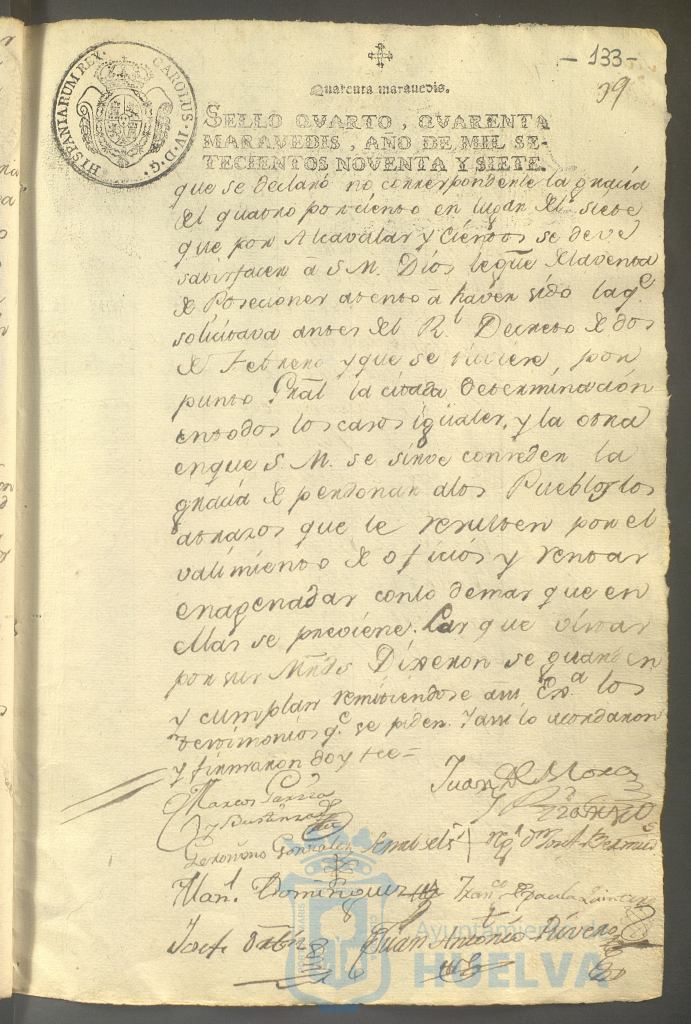 - 133 -
39
HISPANIARUM REX · CAROLUS · IV · D · G ·
Quarenta maravedis.
SELLO QVARTO, QVARENTA
MARAVEDIS, AÑO DE MIL SE-
TECIENTOS NOVENTA Y SIETE.
que se declaró no correspondente la gracia
del quatro por ciento en lugar del siete
que por Alcavalas y Cientos se deve
satisfacer â S. M. Dios le gũe de la venta
de Posesiones atento â haver sido la q.e
solicitava antes del R.l Decreto de dos
de Febrero y que se tuviere por
punto Gr̃al la citada determinación
en todos los casos iguales, y la otra
en que S. M. se sirve conceder la
gracia de perdonar a los Pueblos los
atrazos que le resulten por el
valimiento de oficios y rentas
enagenadas con lo demas que en
ellas se previene. Las que vistas
por sus Mrds Dixeron se guarden
y cumplan remitiendose a su Ex.a los
testimonios q.e se piden. Y asi lo acordaron
y firmaron doy fee =
Juan de Mora
Marcos Garzia
y Bustamante
Geronimo Gonzalez
Man.l Dominguez
Fran.co de Paula
Josef
Juan Antonio Rivero
Ayuntamiento de
HUELVA